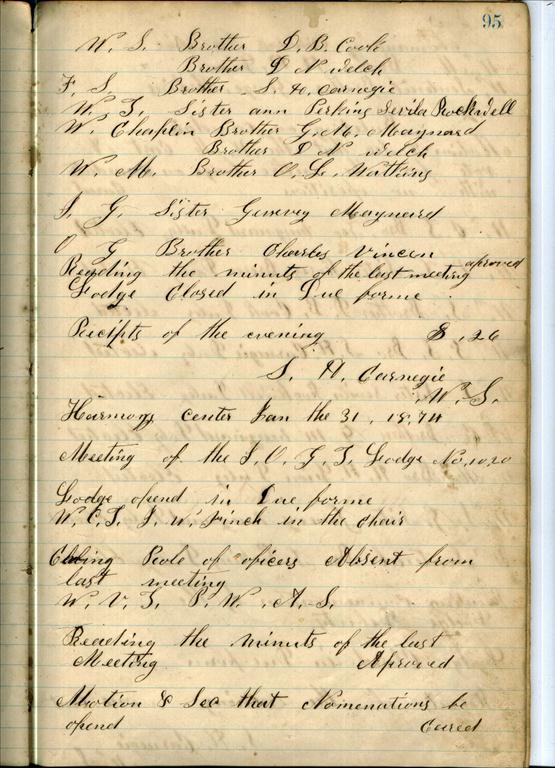 95
W. S. Brother D. B. Cook
Brother D N welch
F. S. Brother S. H. Carnegie
W. T. Sister ann Perkins Sevila Rockwell
W. Chaplin Brother G. M. Maynard
Brother D N welch
W. M. Brother O. L. Watkins
I. G. Sister Genevey Maynard
O G Brother Charles Vincen
Reading the minuts of the last meeting aproved
Lodge Closed in Due forme
Receipts of the evening $ .26
S. H. Carnegie
W. S.
Harmony center Jan the 31, 1874
Meeting of the I. O. G. T. Lodge No, 1020
Lodge opend in Due forme
W. C. T. J. W. Finch in the chair
Calling Roole of oficers Absent from
last meeting
W. V. T. P. W. A. S.
Reading the minuts of the last
Meeting Aproved
Motion & Sec that Nomenations be
opend Cared